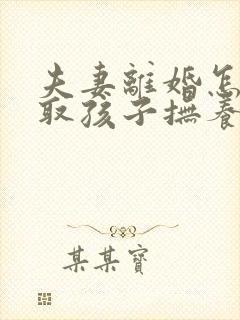 夫妻離婚怎
取孩子撫養
某某寶